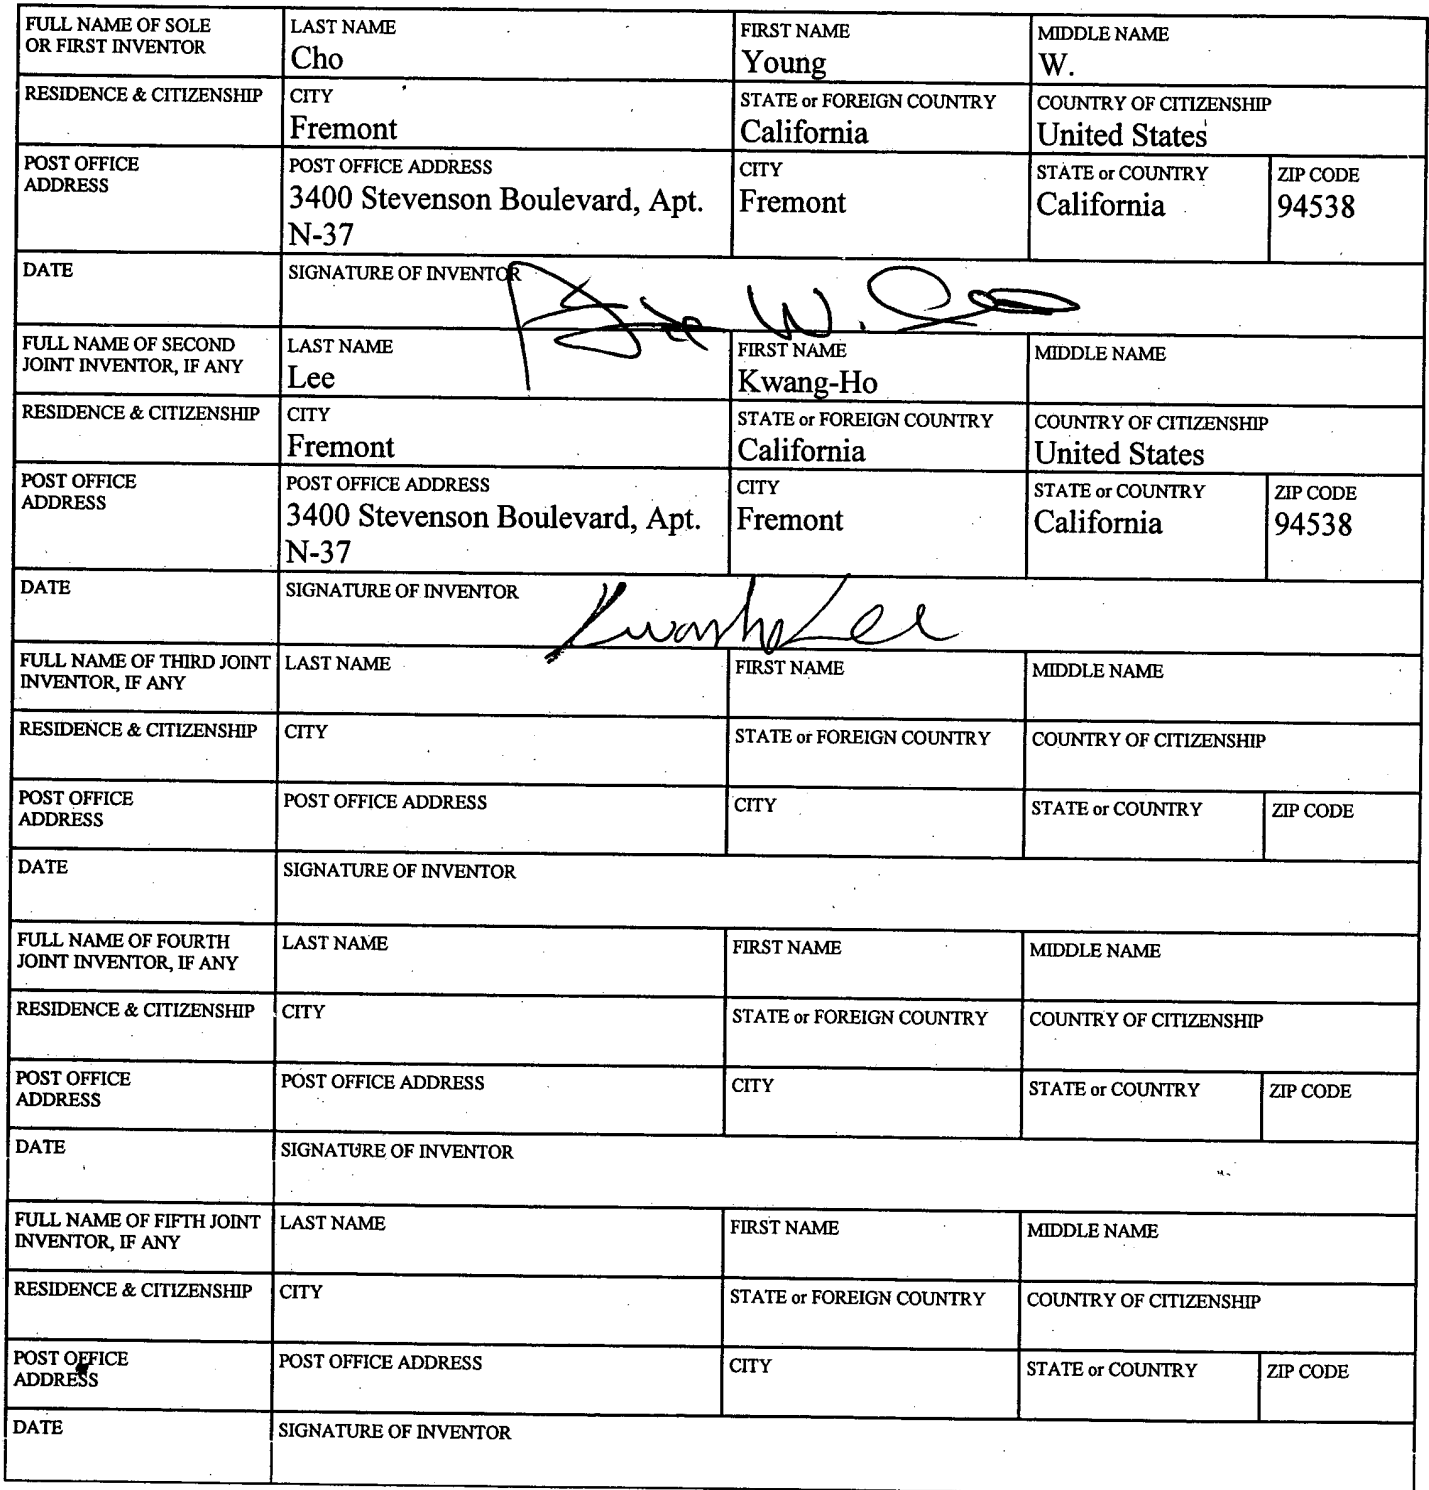 FULL NAME OF SOLE
OR FIRST INVENTOR
LAST NAME
Cho
FIRST NAME
Young
MIDDLE NAME
W.
RESIDENCE & CITIZENSHIP
CITY
Fremont
STATE or FOREIGN COUNTRY
California
COUNTRY OF CITIZENSHIP
United States
POST OFFICE
ADDRESS
POST OFFICE ADDRESS
3400 Stevenson Boulevard, Apt.
N-37
CITY
Fremont
STATE or COUNTRY
California
ZIP CODE
94538
DATE
SIGNATURE OF INVENTOR
W.
FULL NAME OF SECOND
JOINT INVENTOR, IF ANY
LAST NAME
Lee
FIRST NAME
Kwang-Ho
MIDDLE NAME
RESIDENCE & CITIZENSHIP
CITY
Fremont
STATE or FOREIGN COUNTRY
California
COUNTRY OF CITIZENSHIP
United States
POST OFFICE
ADDRESS
POST OFFICE ADDRESS
3400 Stevenson Boulevard, Apt.
N-37
CITY
Fremont
STATE or COUNTRY
California
ZIP CODE
94538
DATE
SIGNATURE OF INVENTOR
Lee
FULL NAME OF THIRD JOINT
INVENTOR, IF ANY
LAST NAME
FIRST NAME
MIDDLE NAME
RESIDENCE & CITIZENSHIP
CITY
STATE or FOREIGN COUNTRY
COUNTRY OF CITIZENSHIP
POST OFFICE
ADDRESS
POST OFFICE ADDRESS
CITY
STATE or COUNTRY
ZIP CODE
DATE
SIGNATURE OF INVENTOR
FULL NAME OF FOURTH
JOINT INVENTOR, IF ANY
LAST NAME
FIRST NAME
MIDDLE NAME
RESIDENCE & CITIZENSHIP
CITY
STATE or FOREIGN COUNTRY
COUNTRY OF CITIZENSHIP
POST OFFICE
ADDRESS
POST OFFICE ADDRESS
CITY
STATE or COUNTRY
ZIP CODE
DATE
SIGNATURE OF INVENTOR
FULL NAME OF FIFTH JOINT
INVENTOR, IF ANY
LAST NAME
FIRST NAME
MIDDLE NAME
RESIDENCE & CITIZENSHIP
CITY
STATE or FOREIGN COUNTRY
COUNTRY OF CITIZENSHIP
POST OFFICE
ADDRESS
POST OFFICE ADDRESS
CITY
STATE or COUNTRY
ZIP CODE
DATE
SIGNATURE OF INVENTOR